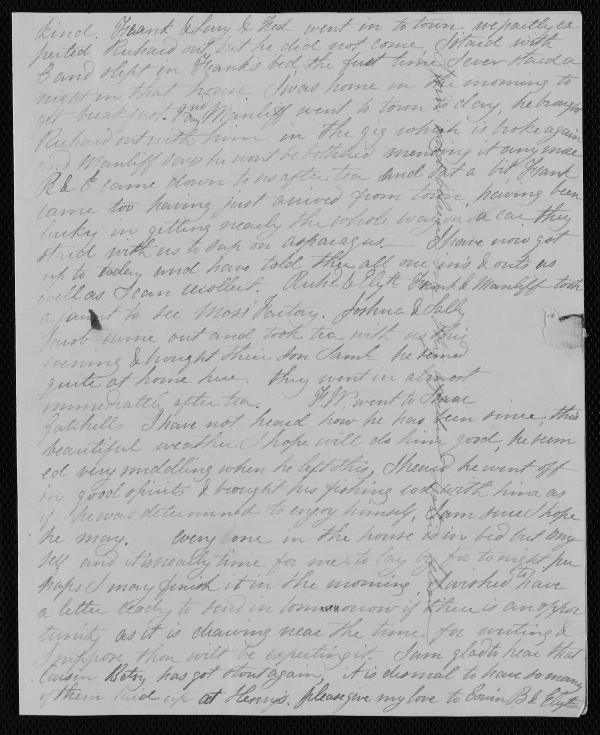 kind. Frank & Lucy & Fred went in to town we partly ex
pected Richard out, but he did not come, I staid with
E and slept in Frank's bed the first time I ever staid a
night in that house I was home in the morning to
get breakfast. 2nd Manliff went to town to day, he brought
Richard out with him in the gig which is broke again
and Manliff says he wont be bothered mending it any more
R & E came down to us after tea and sat a bit Frank
came too having just arrived from town, having been
lucky in getting nearly the whole way on a car they
staid with us to sup on asparagus. I have now got
up to today and have told thee all our in's & out's as
well as I can recollect. Rich'd & Elizth Frank & Manliff took
a jaunt to see Moss' Factory. Joshua & Sally
Jacob came out and took tea with us this
evening & brought their son Saml he seemed
quite at home here. they went in almost
immediately after tea. F W went to Isaac
Gatchells I have not heard how he has been since, this
beautiful weather I hope will do him good, he seem
ed very middling when he left this, I heard he went off
in good spirits & brought his fishing rod with him as
if he was determined to enjoy himself, I am sure I hope
he may. every one in the house is in bed but my
self and it is nearly time for me to lay by for to night, per
haps I may finish it in the morning, I wished to have
a letter ready to send in tomorrow if there is an oppor
tunity as it is drawing near the time for writing &
I suppose thou will be expecting it I am glad to hear that
Cousin Betsy has got stout again, it is dismal to have so many
of them laid up at Henry's. please give my love to Cousin B & Elizth